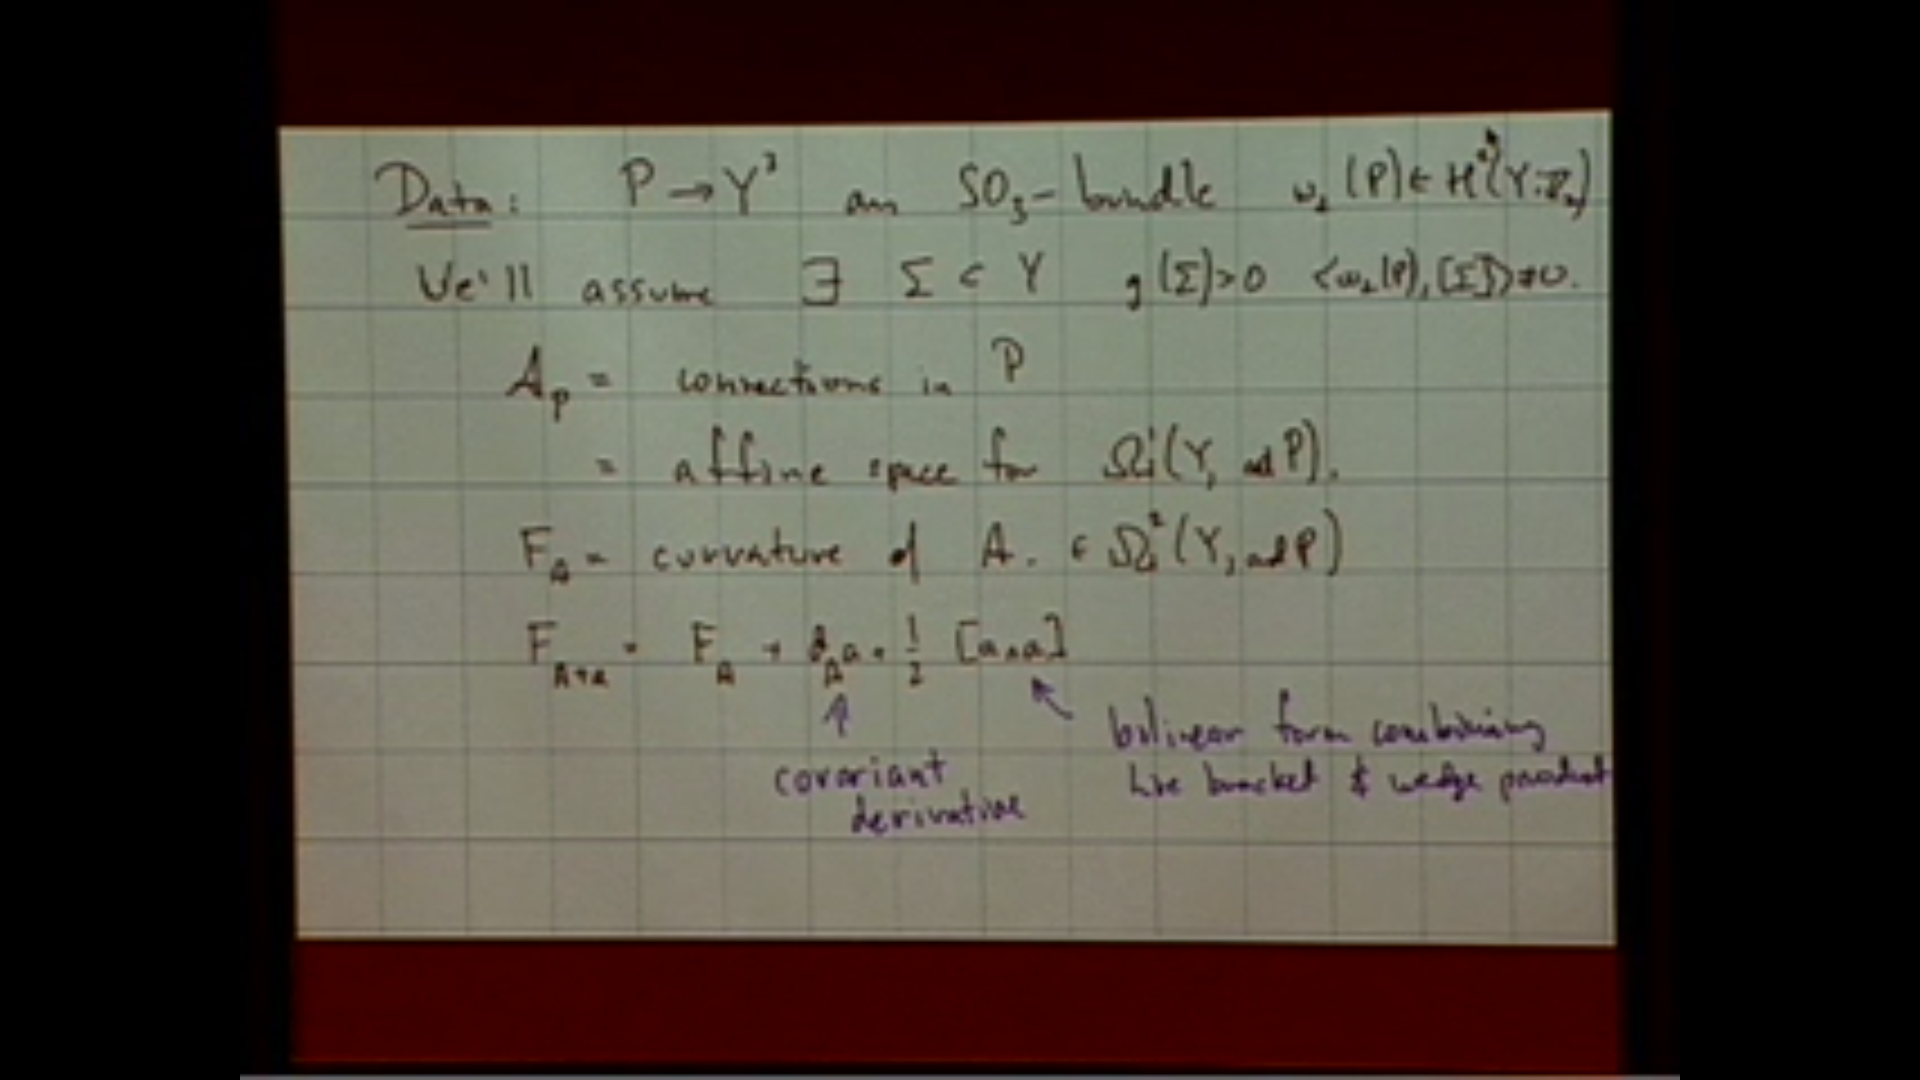 Data: P → Y³ an SO₃-bundle w₂(P) ∈ H²(Y; Z₂)
We'll assume ∃ Σ ⊂ Y g(Σ)>0 <w₂(P), [Σ]> ≠ 0.
A_P = connections in P
= affine space for Ω¹(Y, ad P).
F_A = curvature of A. ∈ Ω²(Y, ad P)
F_{A+a} = F_A + d_A a + ½ [a∧a]
covariant derivative
bilinear form combining
Lie bracket & wedge product